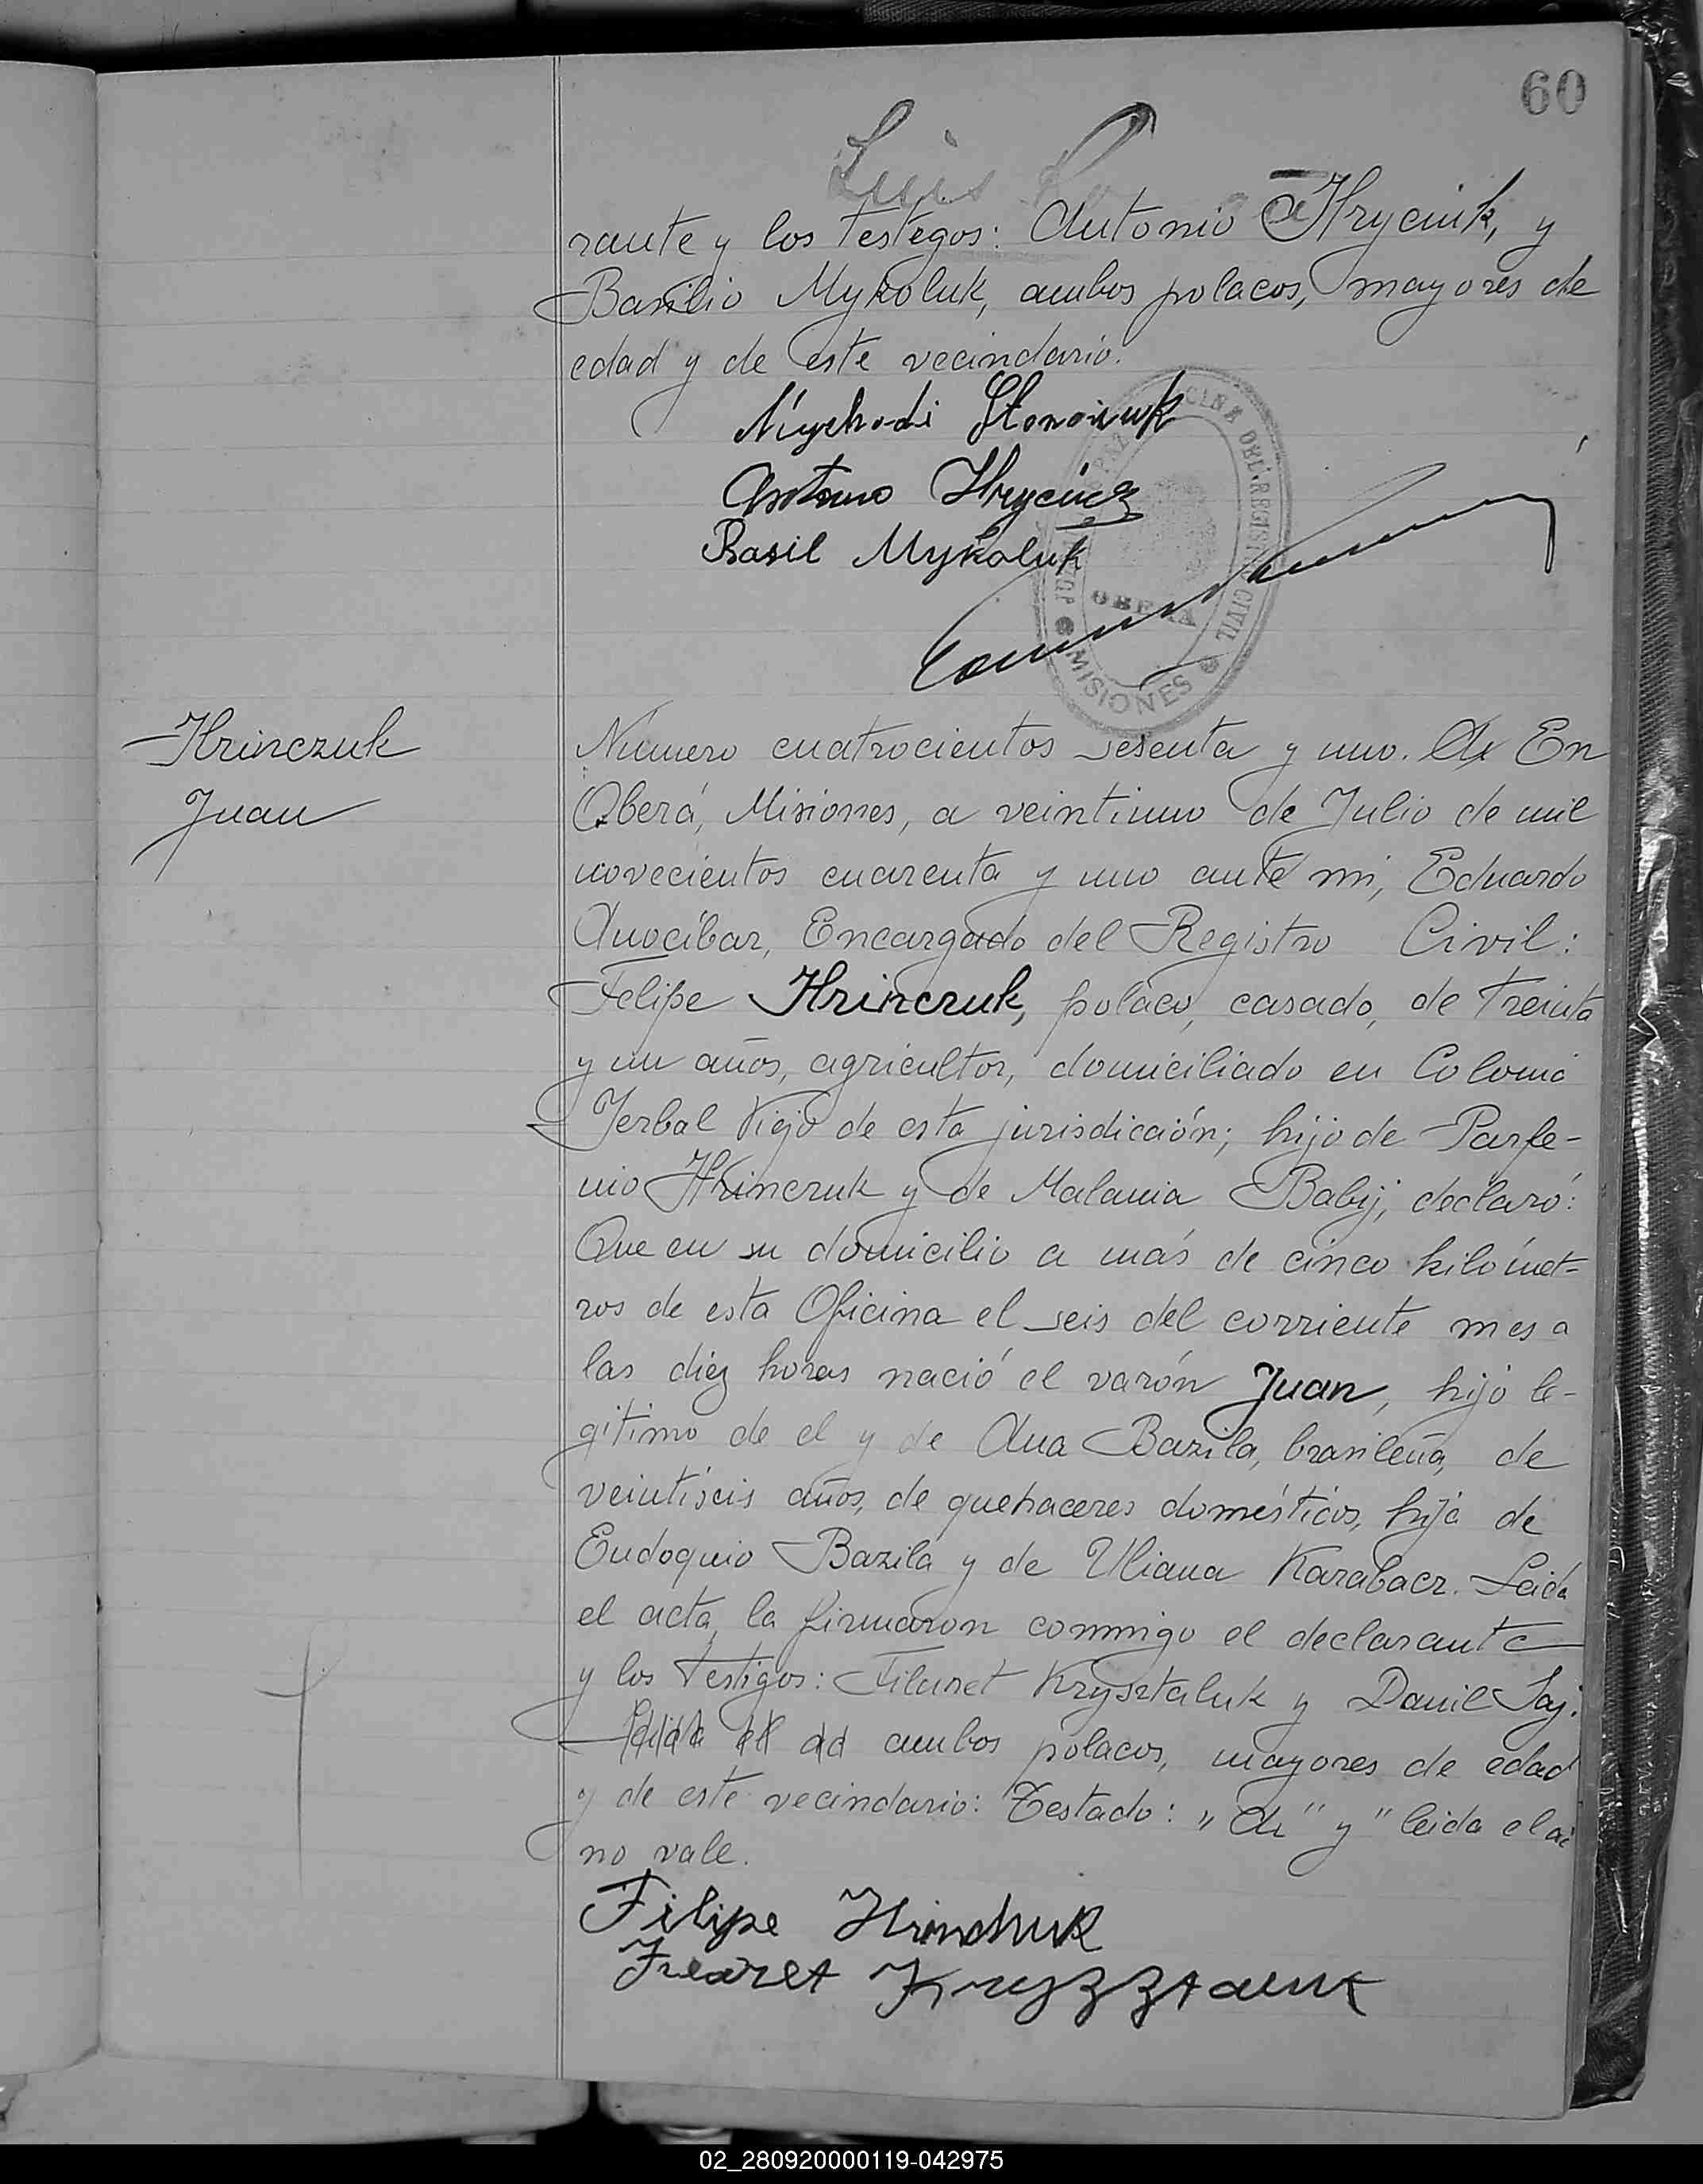 60
Luis
rante y los testigos: Antonio Hryciuk, y
Basilio Mykoluk, ambos polacos, mayores de
edad y de este vecindario.
Antonio Hryciuk
Basil Mykoluk
OFICINA DEL REGISTRO CIVIL
OBERA
MISIONES
Hrinczuk
Juan
Número cuatrocientos sesenta y uno. En
Oberá, Misiones, a veintiuno de Julio de mil
novecientos cuarenta y uno ante mi, Eduardo
Anocíbar, Encargado del Registro Civil:
Felipe Hrinczuk, polaco, casado, de treinta
y un años, agricultor, domiciliado en Colonia
Yerbal Viejo de esta jurisdicción; hijo de Parfe-
nio Hrinczuk y de Malania Babij, declaró:
Que en su domicilio a más de cinco kilómet-
ros de esta Oficina el seis del corriente mes a
las diez horas nació el varón Juan, hijo le-
gitimo de el y de Ana Bazila, brasileña, de
veintiseis años, de quehaceres domésticos, hija de
Eudoquio Bazila y de Uliana Karabacz. Leida
el acta, la firmaron conmigo el declarante
y los testigos: Filaret Krysztaluk y Danil Saj.
ambos polacos, mayores de edad
y de este vecindario: Testado: "A" y "leida el ac
no vale.
Filipe Hrinchuk
02_280920000119-042975